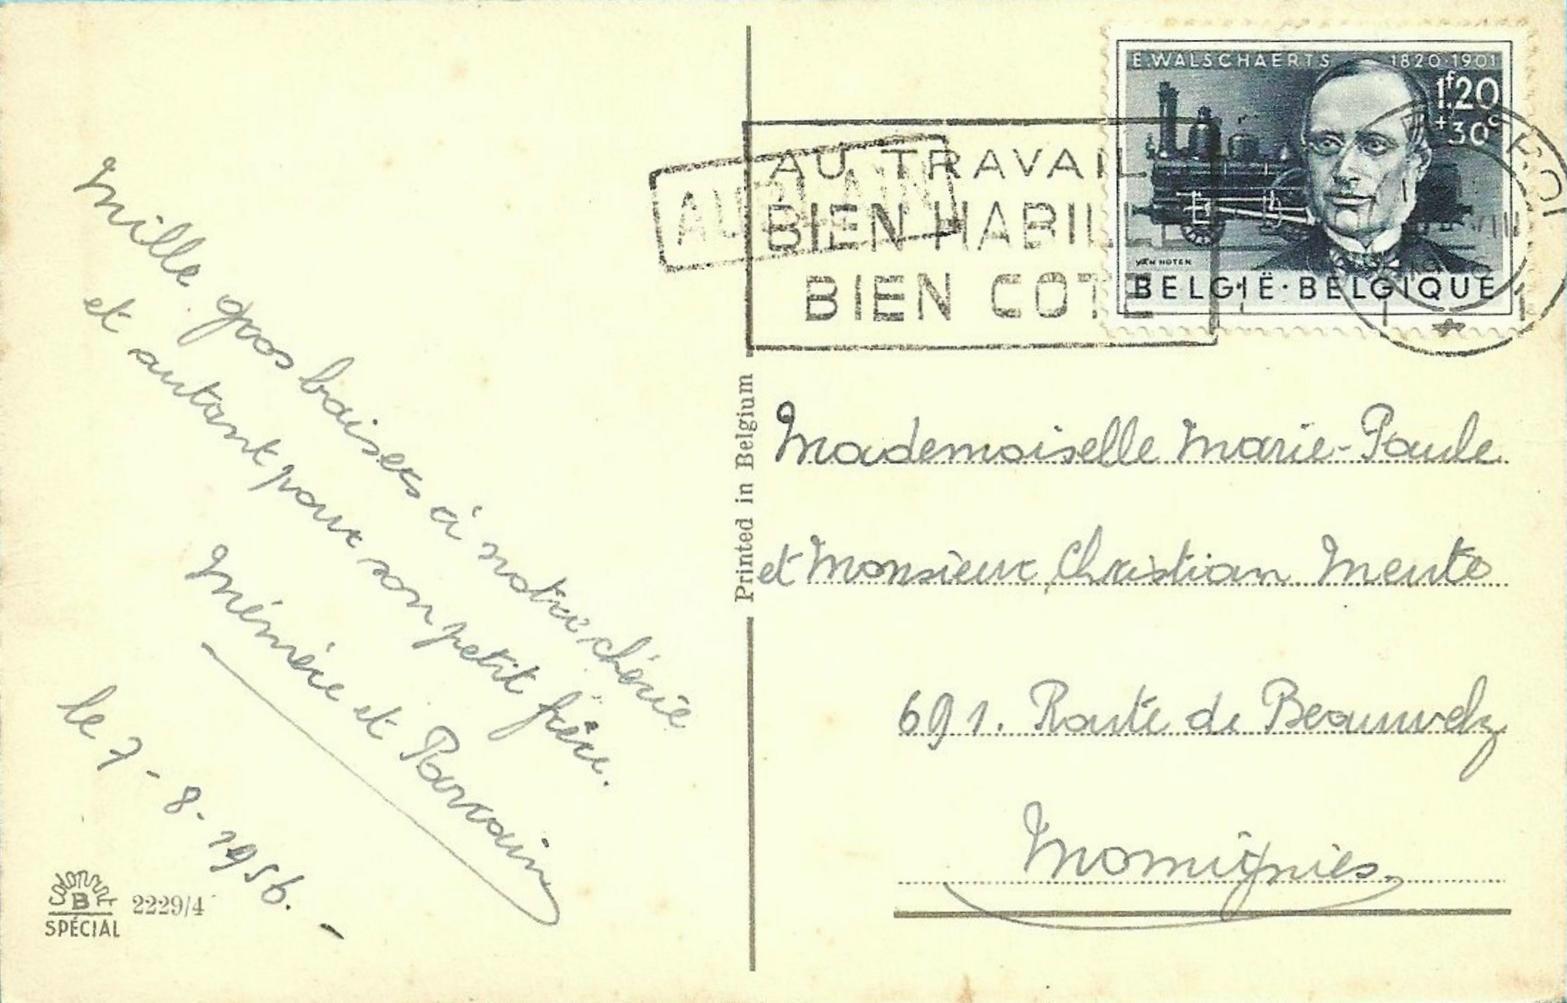 Mille gros baisers à notre chérie
et autant pour son petit frère.
Mémère et Parrain
le 7-8-1956.-
COLORPRINT
B
SPÉCIAL
2229/4
Printed in Belgium
AU TRAVAIL
BIEN HABILLE
BIEN COTE
E.WALSCHAERTS 1820·1901
1f20
+30c
VAN NOTEN
BELGIË·BELGIQUE
Mademoiselle Marie-Paule
et Monsieur Christian
691. Route de Beauwelz
Momignies.